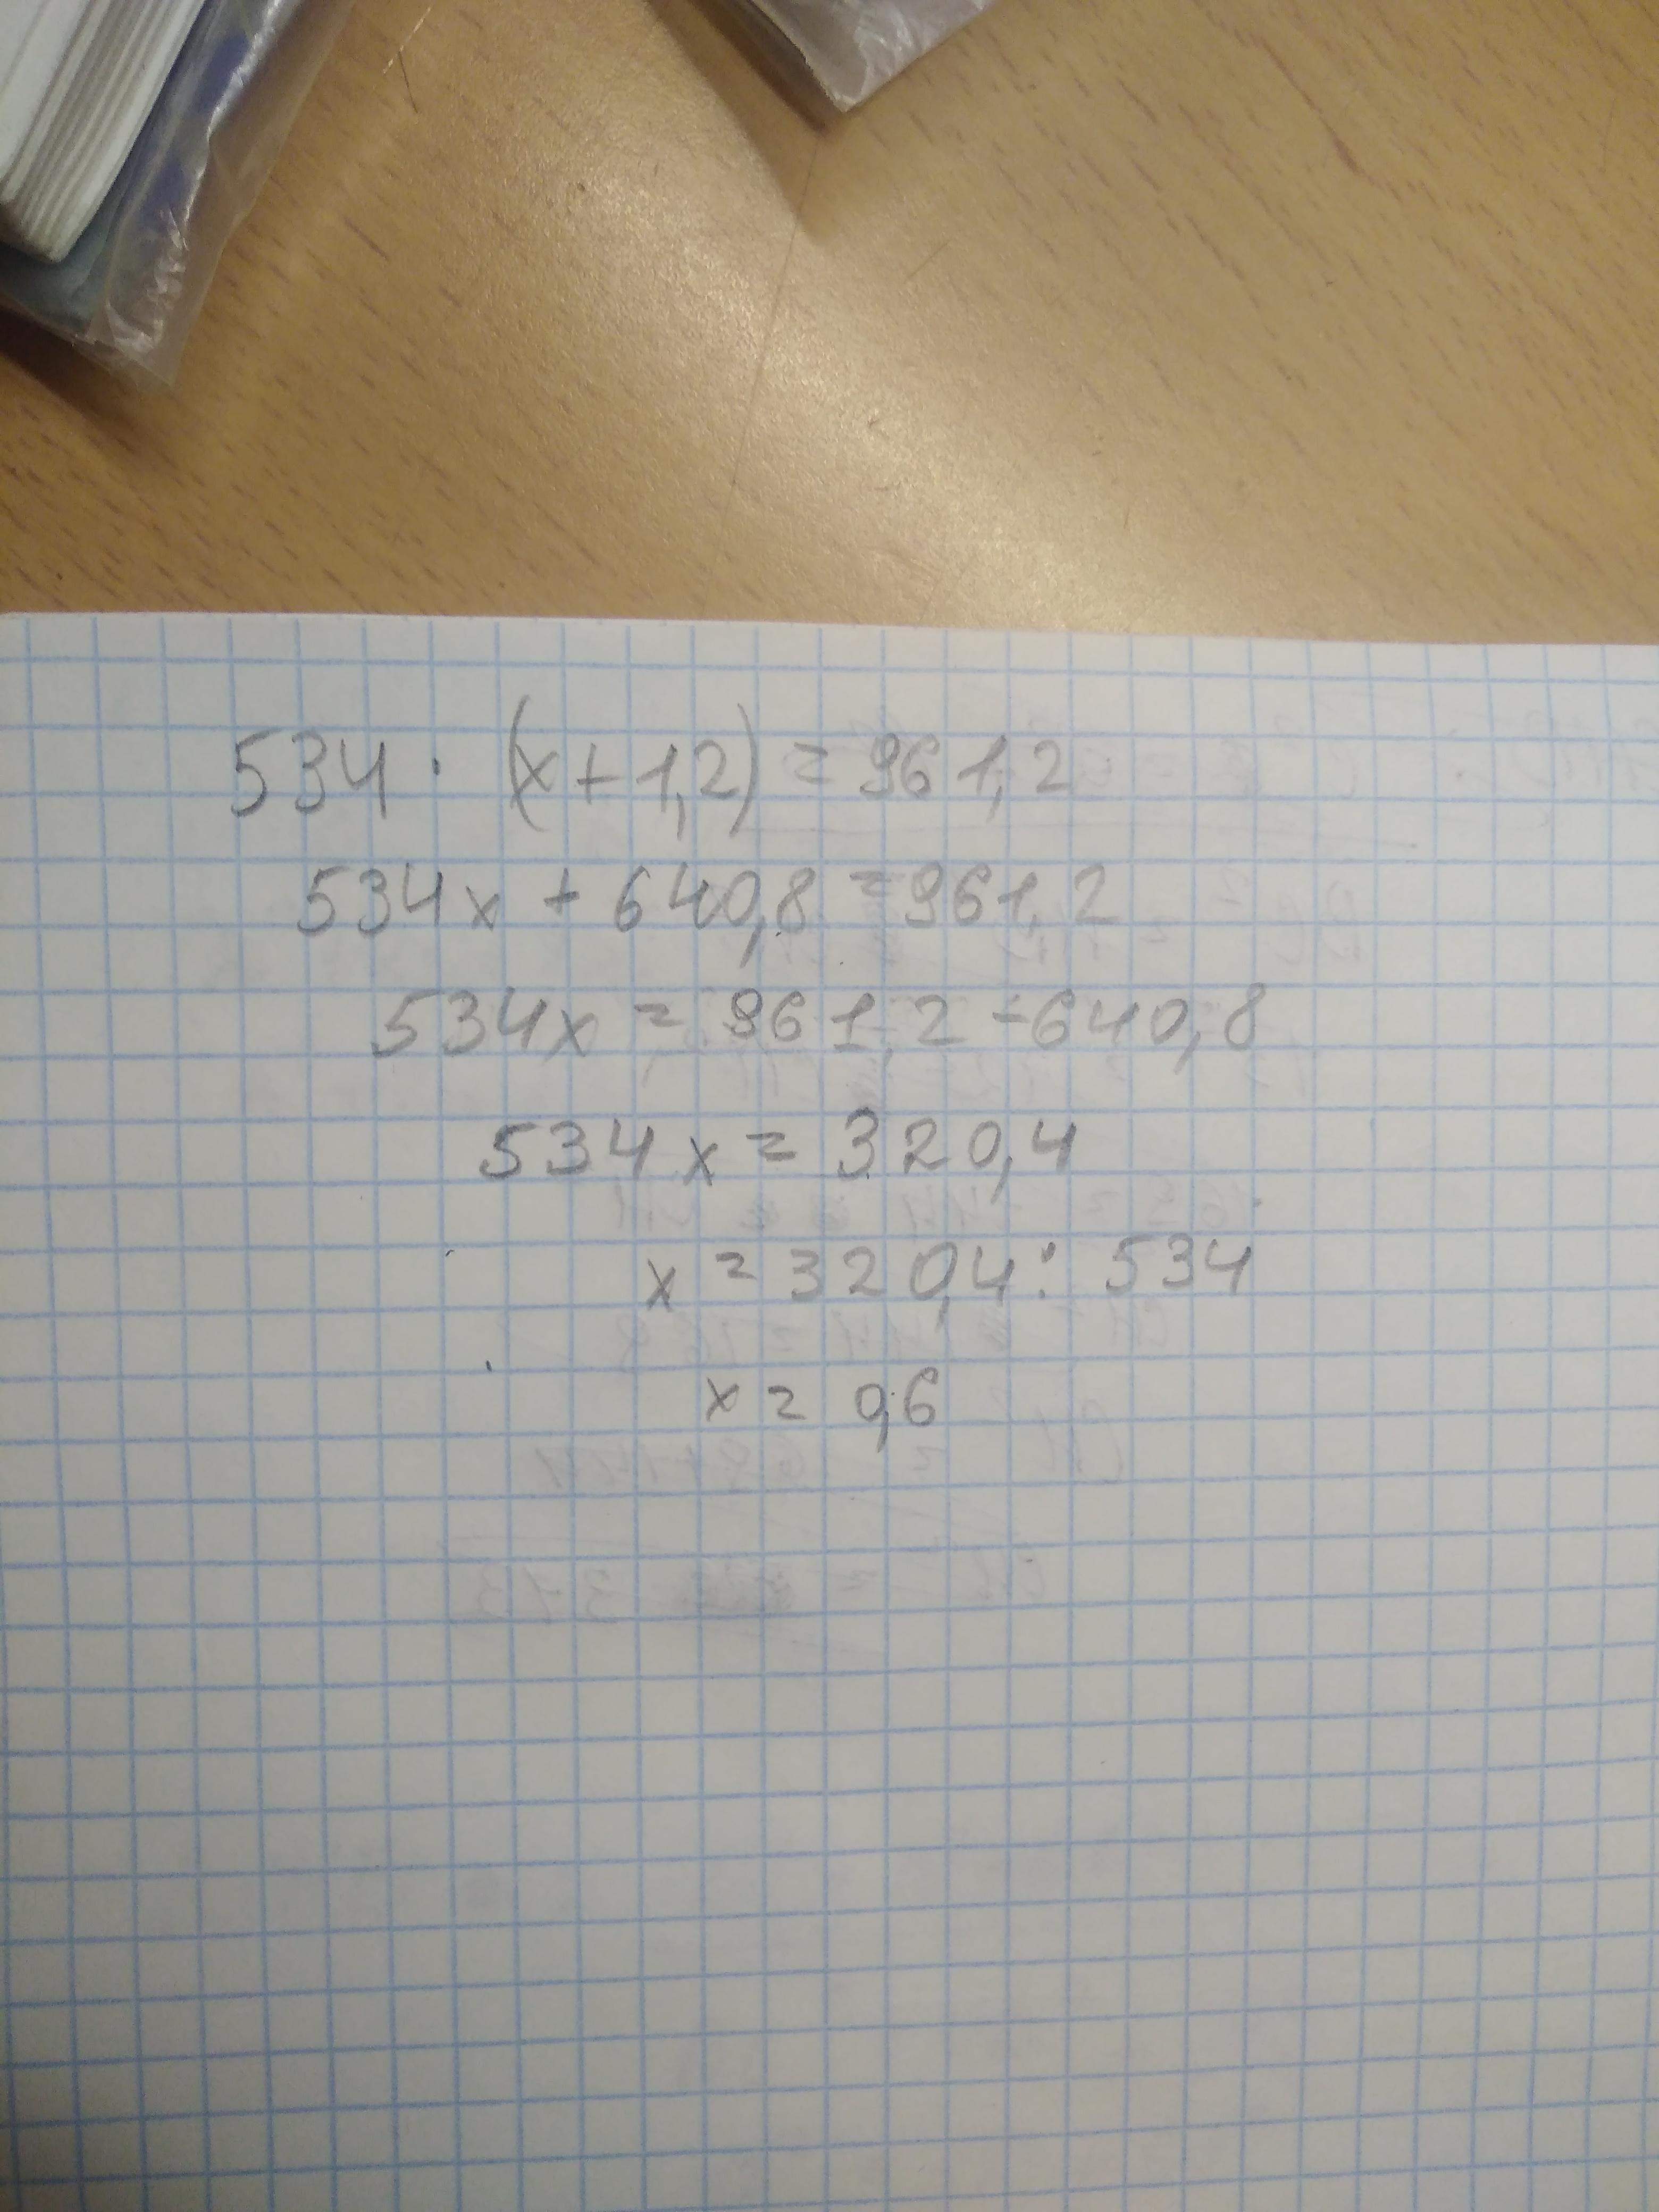 534 · (x+1,2) = 961,2
534x + 640,8 = 961,2
534x = 961,2 - 640,8
534x = 320,4
x = 320,4 : 534
x = 0,6